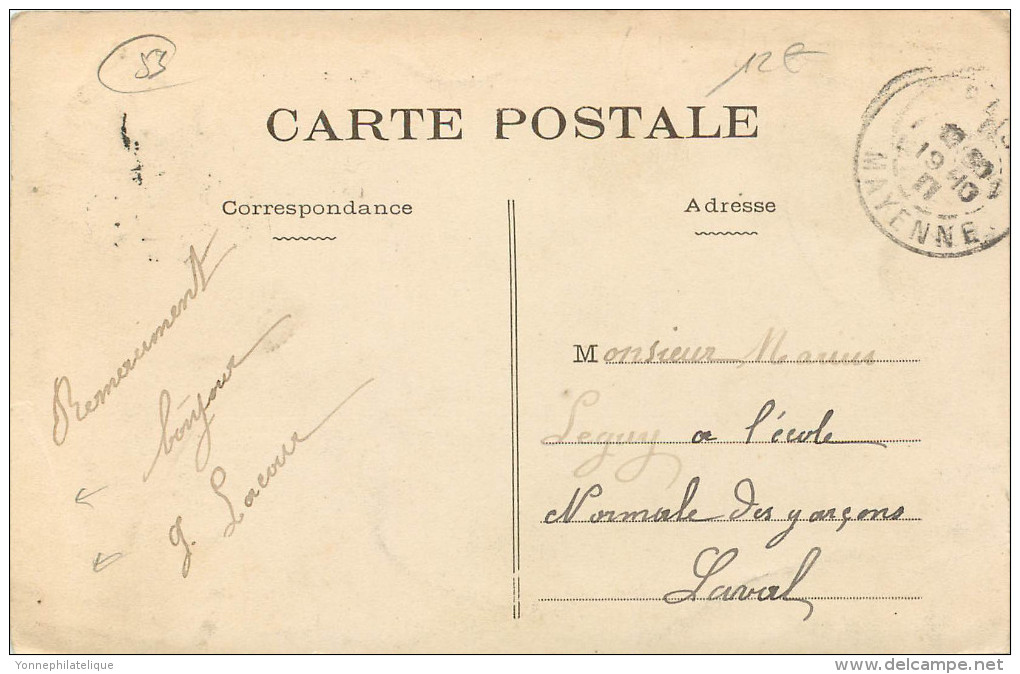 53
12€
CARTE POSTALE
Correspondance
Adresse
MAYENNE
Remerciment
bonjour
g. Lacour
Monsieur Marius
Leguy a l'école
Normale des garçons
Laval
Yonnephilatelique
www.delcampe.net